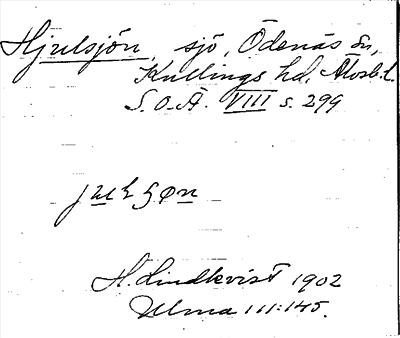 Hjulsjön, sjö, Ödenäs sn,
Kullings hd, Älvsb. l.
S.O.Ä. VIII s. 299
H. Lindkvist 1902
Ulma 111:145.